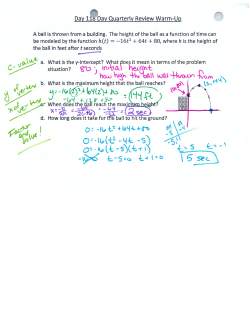 Day 118 Day Quarterly Review Warm-Up
A ball is thrown from a building. The height of the ball as a function of time can
be modeled by the function h(t) = −16t² + 64t + 80, where h is the height of
the ball in feet after t seconds
c-value
a. What is the y-intercept? What does it mean in terms of the problem
situation? 80, initial height
how high the ball was thrown from
y vertex
b. What is the maximum height that the ball reaches?
y=-16(2)²+64(2)+80 = 144 ft
-64 + 128 + 80
(2,144)
x vertex
c. When does the ball reach the maximum height?
= 2 sec
Factor and solve!
d. How long does it take for the ball to hit the ground?
0=-16t²+64t+80
0=-16(t²-4t-5)
0=-16(t-5)(t+1)
t-5=0 t+1=0
-5,1
t=5 t=-1
5 sec